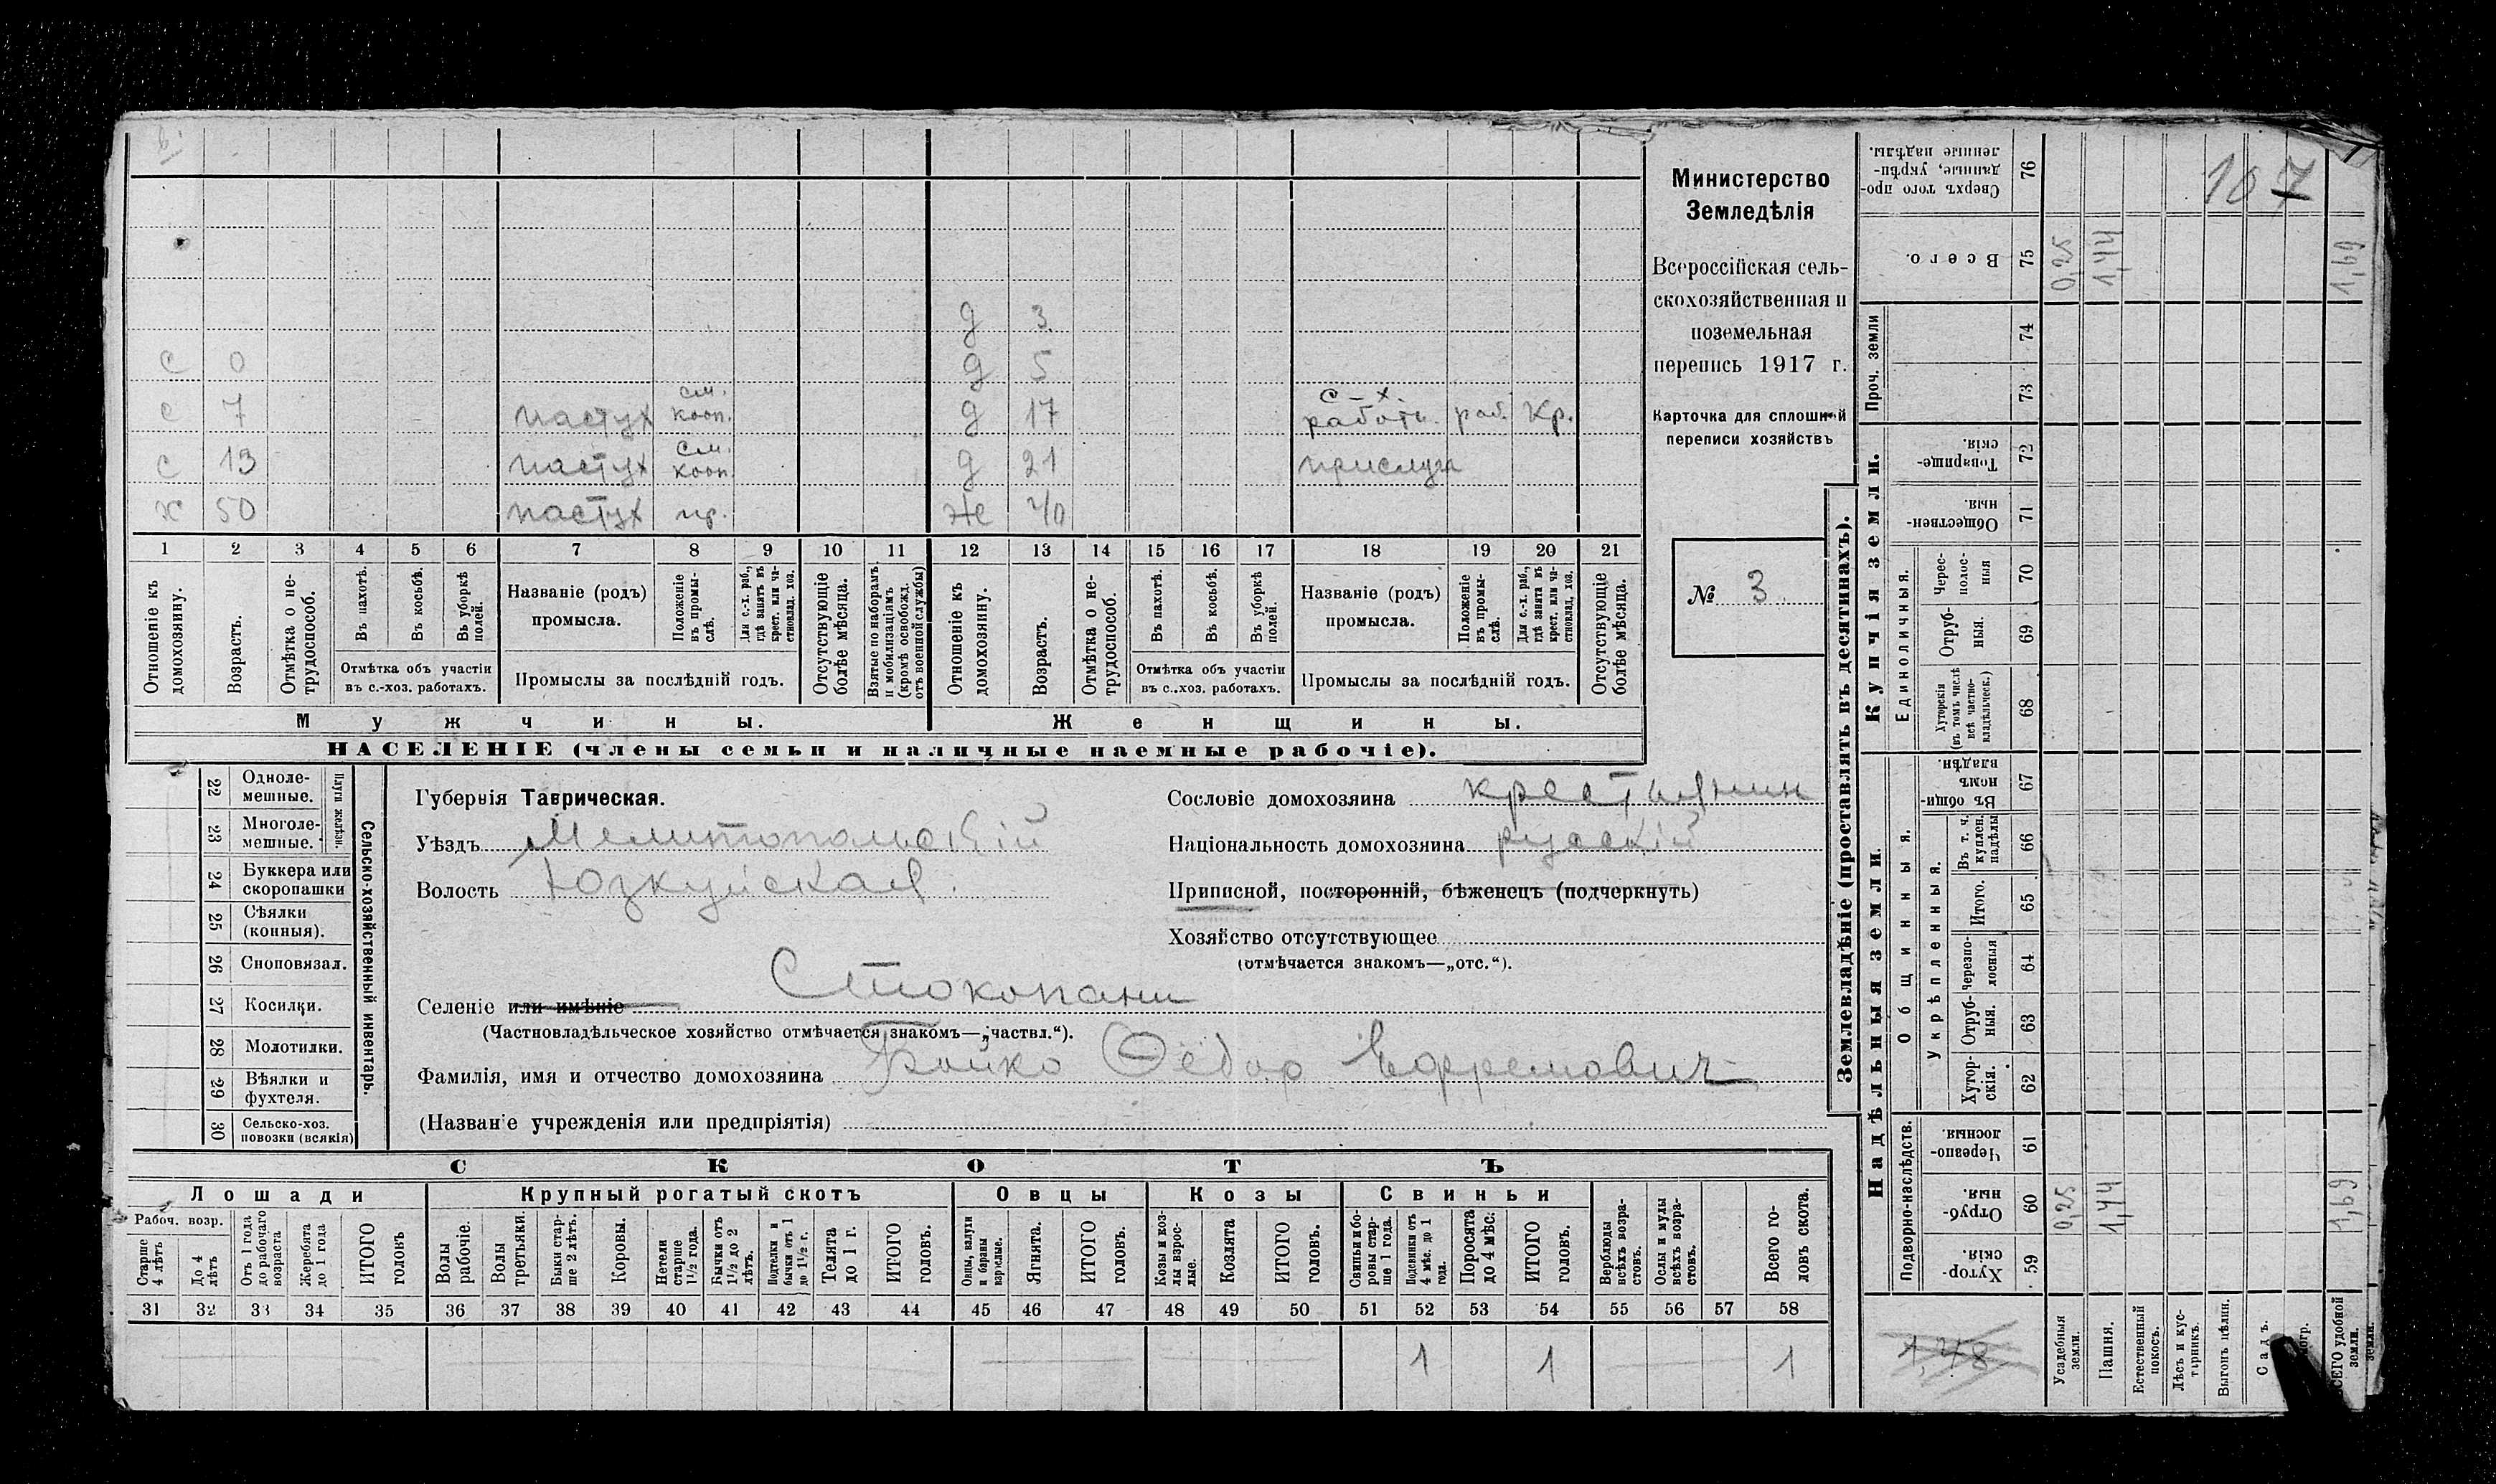 107
Министерство
Земледѣлія
Всероссійская сель-
скохозяйственная и
поземельная
перепись 1917 г.
Карточка для сплошной
переписи хозяйствъ
№ 3
д 3
с 0 д 5
с 7 пастух см. кооп. д 17 с-х. работн. раб. Кр.
с 13 пастух см. кооп. д 21 прислуга
х 50 пастух пр. Же 40
1 2 3 4 5 6 7 8 9 10 11 12 13 14 15 16 17 18 19 20 21
Отношеніе къ домохозяину.
Возрастъ.
Отмѣтка о не-трудоспособ.
Въ пахотѣ.
Въ косьбѣ.
Въ уборкѣ полей.
Отмѣтка объ участіи
въ с.-хоз. работахъ.
Названіе (родъ)
промысла.
Положеніе въ промы-слѣ.
Для с.-х. раб., гдѣ занятъ въ крест. или ча-стновлад. хоз.
Промыслы за послѣдній годъ.
Отсутствующіе болѣе мѣсяца.
Взятые по наборамъ и мобилизаціямъ (кромѣ освобожд. отъ военной службы)
Отношеніе къ домохозяину.
Возрастъ.
Отмѣтка о не-трудоспособ.
Въ пахотѣ.
Въ косьбѣ.
Въ уборкѣ полей.
Отмѣтка объ участіи
въ с.-хоз. работахъ.
Названіе (родъ)
промысла.
Положеніе въ промы-слѣ.
Для с.-х. раб., гдѣ занята въ крест. или ча-стновлад. хоз.
Промыслы за послѣдній годъ.
Отсутствующіе болѣе мѣсяца.
Мужчины. Женщины.
НАСЕЛЕНІЕ (члены семьи и наличные наемные рабочіе).
Сельско-хозяйственный инвентарь.
Плуги желѣзн.
22 Одноле-мешные.
23 Многоле-мешные.
24 Буккера или скоропашки
25 Сѣялки (конныя).
26 Сноповязал.
27 Косилки.
28 Молотилки.
29 Вѣялки и фухтеля.
30 Сельско-хоз. повозки (всякія)
Губернія Таврическая.
Уѣздъ Мелитопольскій
Волость Юзкуйская.
Сословіе домохозяина крестьянин
Національность домохозяина русскій
Приписной, посторонній, бѣженецъ (подчеркнуть)
Хозяйство отсутствующее
(отмѣчается знакомъ—„отс.“).
Селеніе или имѣніе Стокопани
(Частновладѣльческое хозяйство отмѣчается знакомъ—„частвл.“).
Фамилія, имя и отчество домохозяина Бойко Ѳедор Ефремович
(Названіе учрежденія или предпріятія)
СКОТЪ
Лошади Крупный рогатый скотъ Овцы Козы Свиньи
Рабоч. возр.
Старше 4 лѣтъ
До 4 лѣтъ
Отъ 1 года до рабочаго возраста
Жеребята до 1 года
ИТОГО головъ
Волы рабочіе.
Волы третьяки.
Быки стар-ше 2 лѣтъ.
Коровы.
Нетели старше 1½ года.
Бычки отъ 1½ до 2 лѣтъ.
Подтелки и бычки отъ 1 до 1½ г.
Телята до 1 г.
ИТОГО головъ.
Овцы, валухи и бараны взрослые.
Ягнята.
ИТОГО головъ.
Козы и коз-лы взрос-лые.
Козлята
ИТОГО головъ.
Свиньи и бо-ровы стар-ше 1 года.
Подсвинки отъ 4 мѣс. до 1 года.
Поросята до 4 мѣс.
ИТОГО головъ.
Верблюды всѣхъ возра-стовъ.
Ослы и мулы всѣхъ возра-стовъ.
Всего го-ловъ скота.
31 32 33 34 35 36 37 38 39 40 41 42 43 44 45 46 47 48 49 50 51 52 53 54 55 56 57 58
1 1 1
Землевладѣніе (проставлять въ десятинахъ).
Сверхъ того про-данные, укрѣп-ленные надѣлы. 76
Всего. 75 0,25 1,44 1,69
Проч. земли
74
73
Купчія земли.
Товарище-скія. 72
Обществен-ныя. 71
Единоличныя.
Черес-полос-ныя 70
Отруб-ныя. 69
Хуторскія (въ томъ числѣ всѣ частно-владѣльческ.) 68
Надѣльныя земли.
Общинныя.
Въ общи-номъ владѣн. 67
Укрѣпленныя.
Въ т. ч. куплен. надѣлы 66
Итого. 65
Черезпо-лосныя 64
Отруб-ныя. 63
Хутор-скія. 62
Подворно-наслѣдств.
Черезпо-лосныя. 61
Отруб-ныя. 60 0,25 1,44 1,69
Хутор-скія. 59
1,48
Усадебныя земли.
Пашня.
Естественный покосъ.
Лѣсъ и кус-тарникъ.
Выгонъ цѣлин.
Садъ.
удобной земли.